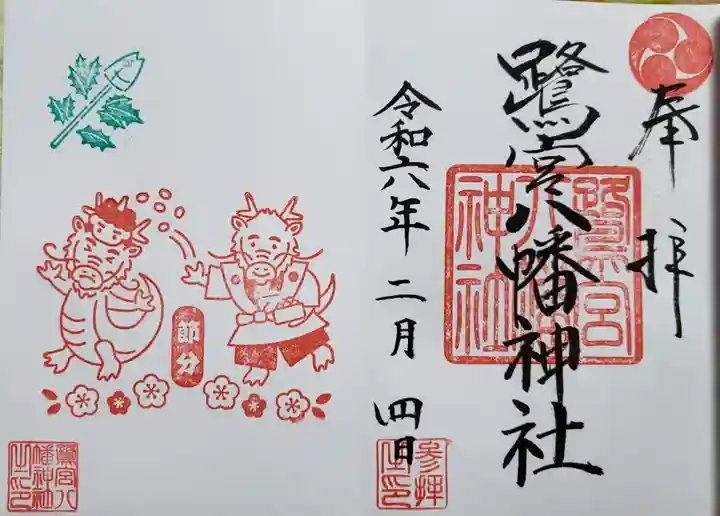 奉拝
鷺宮八幡神社
鷺宮八幡神社
令和六年二月四日
参拝之印
節分
鷺宮八幡神社之印